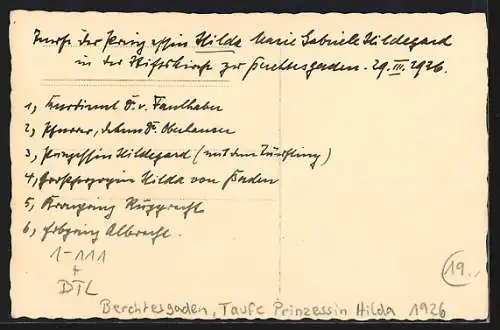 Taufe der Prinzessin Hilda Marie Gabriele Hildegard
in der Stiftskirche zu Berchtesgaden. 29. III. 1926.
1, Kardinal D. v. Faulhaber
2, Pfarrer, Dekan Dr. Oberhauser
3, Prinzessin Hildegard (mit dem Täufling)
4, Großherzogin Hilda von Baden
5, Kronprinz Rupprecht
6, Erbprinz Albrecht.
1-111
+
BTL
19.-
Berchtesgaden, Taufe Prinzessin Hilda 1926